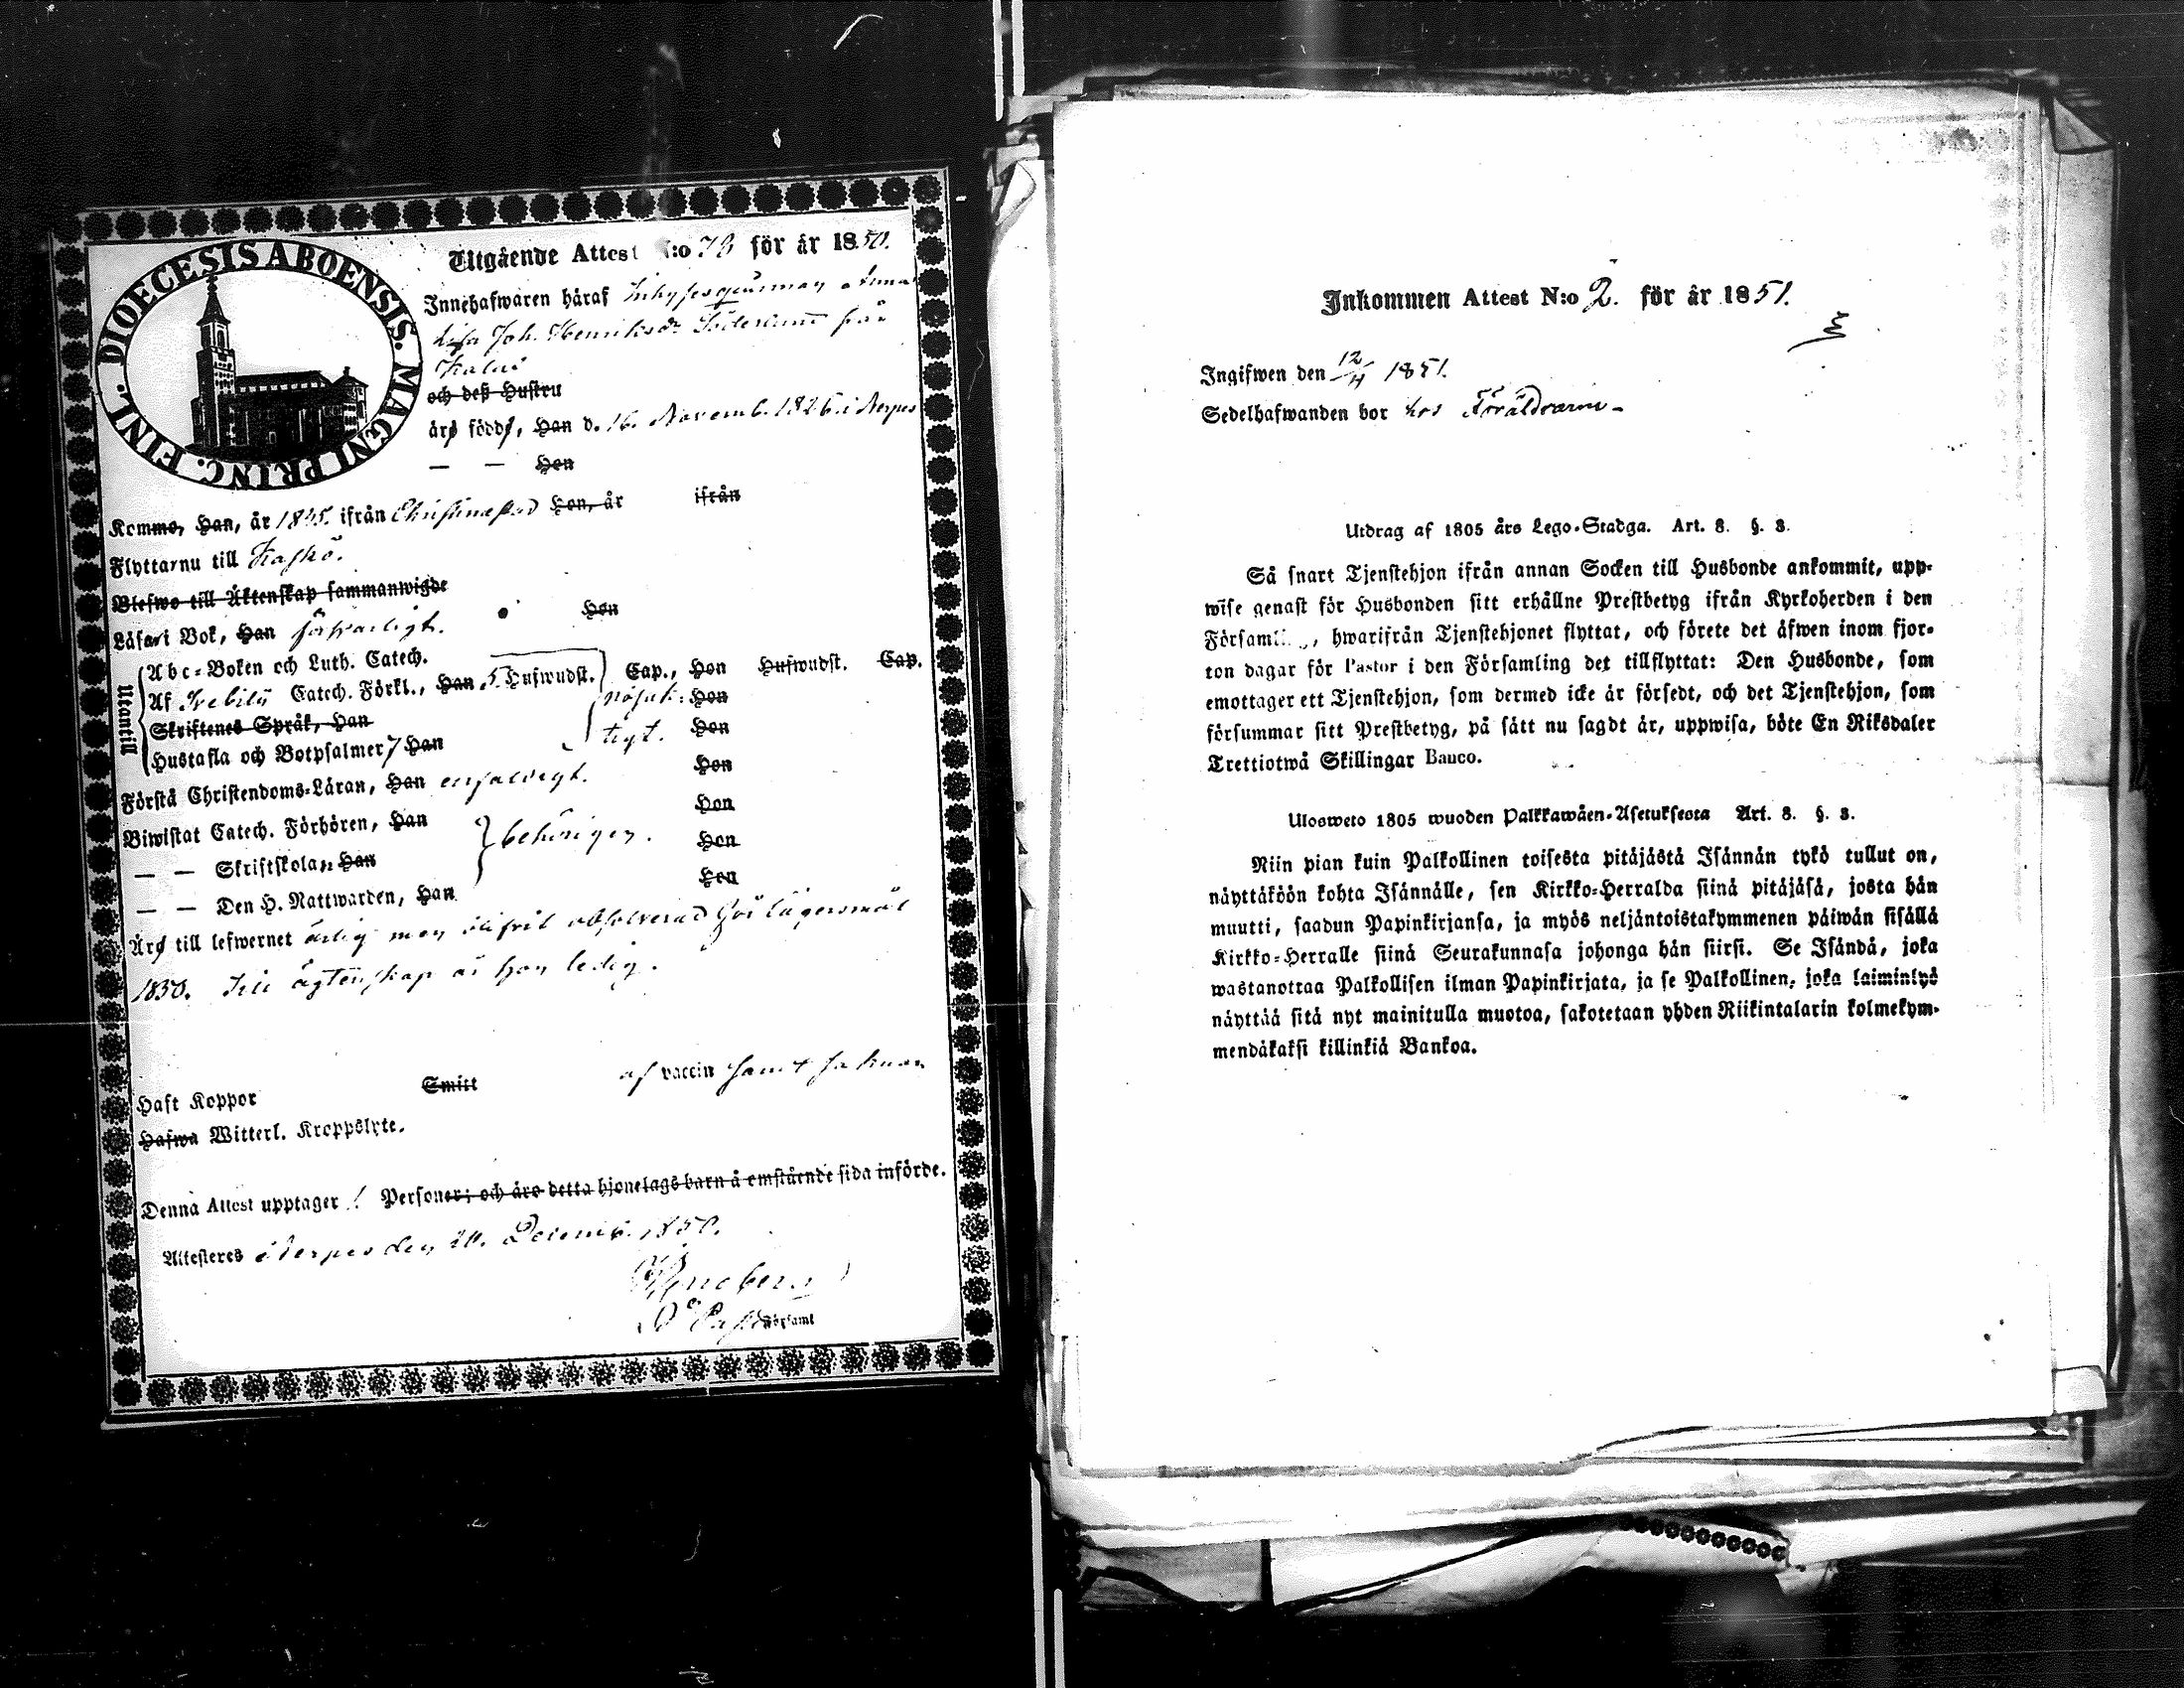 DIOECESIS ABOENSIS. MAGNI PRINC. FINL.
Utgående Attest N:o 73 för år 1850.
Innehafwaren håraf Inhysesqwinnan Anna
Lisa Joh. Henriksdr Söderlund från
och deß Hustru
åro födde, Han d. 16. Novemb. 1826 i Nerpes
— — Hon
Kommo, Han, år 1845. ifrån Christinestad Hon, år ifrån
Flyttar nu till Kaskö.
Blefwo till Äktenskap sammanwigde
Låsa i Bok, Han förswarligt. Hon
Utantill
Abc-Boken och Luth. Catech.
Af Svebilii Catech. Förkl., Han 5. Hufwudst. Cap., Hon Hufwudst. Cap.
Skriftenes Språk, Han nöjak- Hon
Hustafla och Botpsalmer 7 Han tigt. Hon
Förstå Christendoms-Låran, Han enfaldigt. Hon
Biwistat Catech. Förhören, Han Hon
— — Skriftskolan, Han behörigen. Hon
— — Den H. Nattwarden, Han Hon
Åro till lefwernet ärlig men absolverad för lägersmål
1850. Till ägtenskap är hon ledig.
Haft Koppor Smitt af vaccin samt
Hafwa Witterl. Kroppslyte.
Denna Attest upptager 1 Personer; och åro detta hjonelags barn å emstående sida införde.
Attesteres i Nerpes den 20. Decemb. 1850.
Inkommen Attest N:o 2. för år 1851.
Ingifwen den 12/4 1851.
Sedelhafwanden bor hos Föräldrarne
Utdrag af 1805 års Lego-Stadga. Art. 8. §. 3.
Så snart Tjenstehjon ifrån annan Socken till Husbonde ankommit, upp-
wise genast för Husbonden sitt erhållne Prestbetyg ifrån Kyrkoherden i den
Församl , hwarifrån Tjenstehjonet flyttat, och förete det åfwen inom fjor-
ton dagar för Pastor i den Församling det tillflyttat: Den Husbonde, som
emottager ett Tjenstehjon, som dermed icke år försedt, och det Tjenstehjon, som
försummar sitt Prestbetyg, på sått nu sagdt år, uppwisa, böte En Riksdaler
Trettiotwå Skillingar Banco.
Ulosweto 1805 wuoden Palkkawåen-Asetuksesta Art. 8. §. 3.
Niin pian kuin Palkollinen toisesta pitåjåstå Isånnån tykö tullut on,
nåyttåköön kohta Isånnålle, sen Kirkko-Herralda siinå pitåjåså, josta hån
muutti, saadun Papinkirjansa, ja myös neljåntoistakymmenen påiwån sisållå
Kirkko-Herralle siinå Seurakunnasa johonga hån siirsi. Se Isåndå, joka
wastanottaa Palkollisen ilman Papinkirjata, ja se Palkollinen, joka laiminlyö
nåyttåå sitå nyt mainitulla muotoa, sakotetaan yhden Riikintalarin kolmekym-
mendåkaksi killinkiå Bankoa.